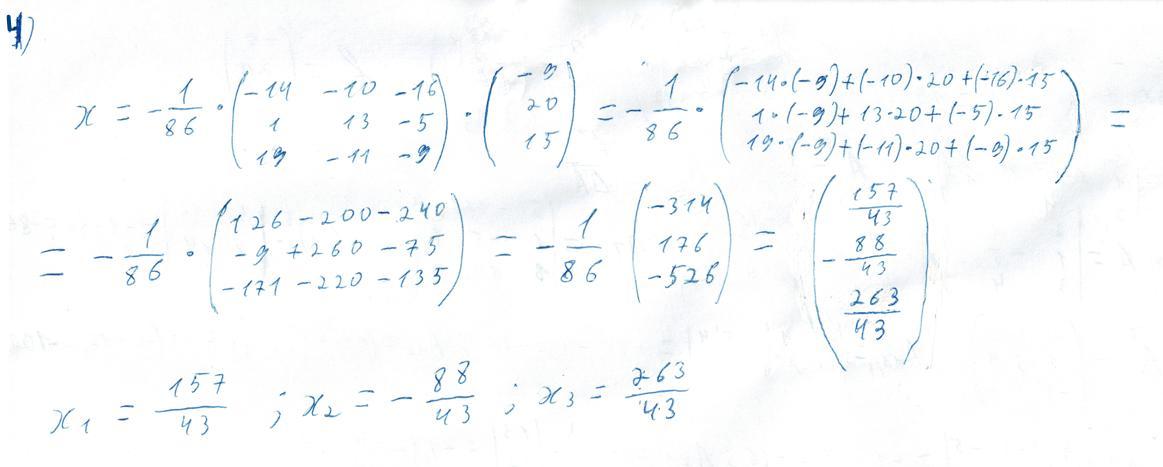 4)
x = -1/86 · (-14 -10 -16; 1 13 -5; 19 -11 -9) · (-9; 20; 15) = -1/86 · (-14·(-9)+(-10)·20+(-16)·15; 1·(-9)+13·20+(-5)·15; 19·(-9)+(-11)·20+(-9)·15) =
= -1/86 · (126-200-240; -9+260-75; -171-220-135) = -1/86 (-314; 176; -526) = (157/43; -88/43; 263/43)
x₁ = 157/43 ; x₂ = -88/43 ; x₃ = 263/43